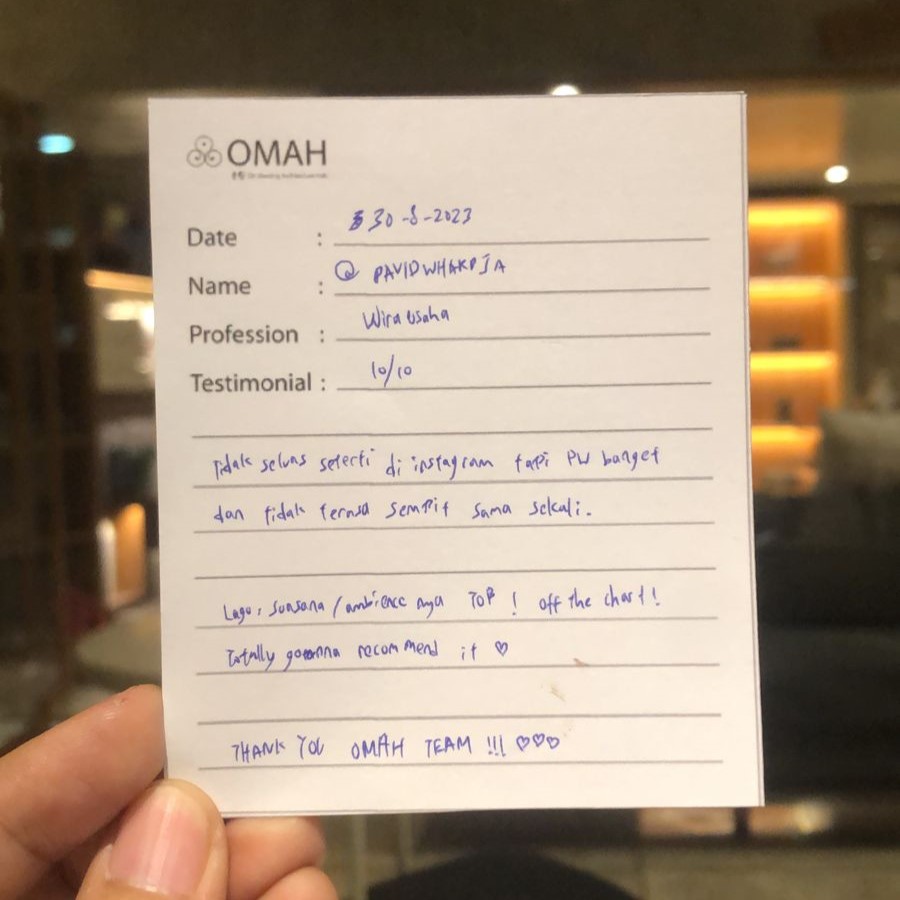 OMAH
Date : 30-8-2023
Name : @DAVIDWHARDJA
Profession : Wirausaha
Testimonial : 10/10
Tidak seluas seperti di instagram tapi PW banget
dan tidak terasa sempit sama sekali.
Lagu, suasana/ambience nya TOP! off the chart!
Totally gonna recommend it ♡
THANK YOU OMAH TEAM !!! ♡♡♡